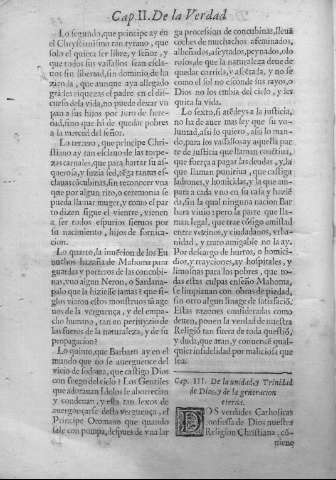 Cap. II. De la Verdad
Lo segundo, que principe ay en
el Christianismo tan tyrano, que
solo el quiera ser libre, y señor, y
que todos sus vassallos sean escla-
uos sin libertad, sin dominio de ha
zienda, que aunque aya allegado
grandes riquezas el padre en el dis-
curso desta vida, no puede dexar vn
pan a sus hijos por juro de here-
dad, sino que han de quedar pobres
a la merced del señor.
Lo tercero, que principe Chris-
tiano ay tan esclauo de las torpe-
zas carnales, que para hartar su as-
querosa, y suzia sed, tenga tantas es-
clauas concubinas, sin reconocer vna
que por algun rito, o ceremonia se
pueda llamar muger, y como el par
to dizen sigue el vientre, vienen
a ser todos espurios sieruos por
su nacimiento, hijos de fornica-
cion.
Lo quarto, la inuencion de los Eu
nuchos hazaña de Mahoma para
guardas y porteros de las concubi-
nas, vuo algun Neron, o Sardana-
palo que la hiziesse jamas? que si-
glos vieron estos monstruos en
de la verguença, y del empa-
cho humano, tan en perjuyzio de
las fuerças de la naturaleza, y de su
propagacion?
Lo quinto, que Barbaro ay en el
mundo que no se auerguence del
vicio de sodoma, que castigò Dios
con fuego del cielo? Los Gentiles
que adorauan Idolos le aborrecen
y condenan, y esta tan lexos de
auergonçarse desta verguença, el
Principe Otomano que quando
sale con pompa, despues de vna lar
ga procession de concubinas, lleua
coches de muchachos afeminados,
afeitados, peynados, olo
rosos, de que la naturaleza deue de
quedar corrida, y afrentada, y no se
como el sol no esconde sus rayos, o
Dios no los embia del cielo, y les
quita la vida.
Lo sexto, si atiendes a la justicia,
no ha de auer mas ley que su vo-
luntad, assi lo quiero, assi lo man-
do, para los vassallos ay aquella par
te de justicia que llaman
que fuerça a pagar las deudas, y la
que llaman punitiua, que castiga
ladrones, y homicidas, y la que am-
para a cada vno en su casa y hazié-
da, sin la qual ninguna nacion Bar
bara viuio pero la parte que lla-
man legal, que trae consigo amistad
entre vezinos, y ciudadanos, vrba-
nidad, y trato amigable no la ay.
Por descargo de hurtos, o homici-
dios, y trayciones, ay hospitales, y
limosnas para los pobres, que to-
das estas culpas enseñò Mahoma,
se limpiauan con obras de piedad,
sin otro algun linage de satisfació.
Estas razones consideradas como
deuen, ponen la verdad de nuestra
Religió tan fuera de toda questió,
y duda, que atan, y conuencé qual-
quier infidelidad por maliciosa que
sea.
Cap. III. De la unidad, y Trinidad
de Dios, y de la generacion
eterna.
DOS verdades Catholicas
confiessa de Dios nuestra
Religion Christiana, có-
uiene